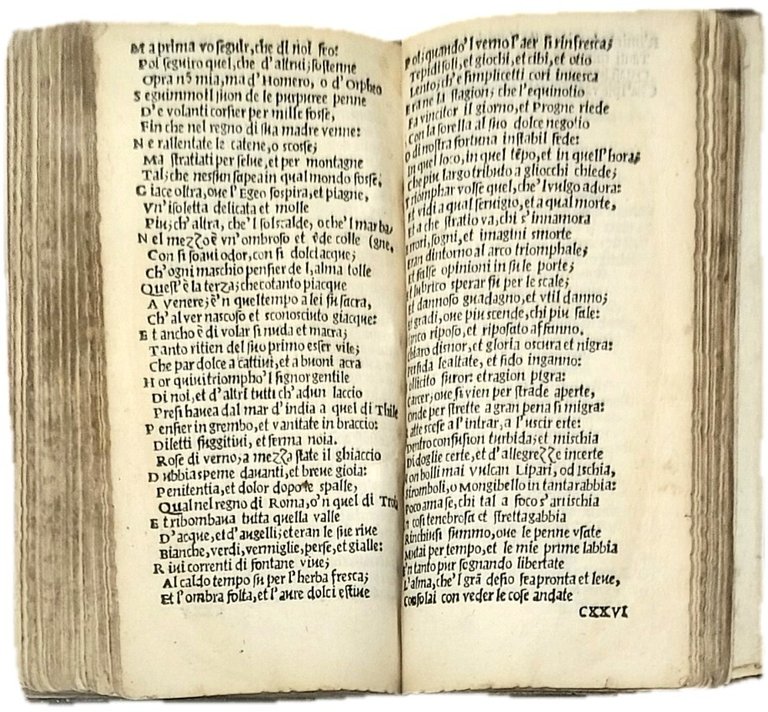 M a prima vo seguir, che di noi feo:
Poi seguiro quel, che d'altrui; sostenne
Opra nõ mia, ma d'Homero, o d'Orpheo
S eguimmo il suon de le purpuree penne
D'e volanti corsier per mille fosse,
Fin che nel regno di sua madre venne:
N e rallentate le catene, o scosse;
Ma stratiati per selue, et per montagne
Tal; che nessun sapea in qual mondo fosse.
G iace oltra, oue l'Egeo sospira, et piagne,
Vn'isoletta delicata et molle
Piu; ch'altra, che'l sol scalde, o che'l mar ba
N el mezzo è vn'ombroso et ṽde colle (gne,
Con si soaui odor, con si dolci acque;
Ch'ogni maschio pensier de l'alma tolle
Quest'è la terza; che cotanto piacque
A venere; e'n quel tempo a lei fu sacra,
Ch'al ver nascoso et sconosciuto giacque:
E t ancho è di valor si nuda et macra;
Tanto ritien del suo primo esser vile;
Che par dolce a cattiui, et a buoni acra
H or quiui triompho'l signor gentile
Di noi, et d'altri tutti ch'adun laccio
Presi hauea dal mar d'india a quel di Thile
P ensier in grembo, et vanitate in braccio:
Diletti fuggitiui, et ferma noia.
Rose di verno; a mezza state il ghiaccio
D ubbia speme dauanti, et breue gioia:
Penitentia, et dolor dopo le spalle,
Qual nel regno di Roma, o'n quel di Troia
E t ribombaua tutta quella valle
D'acque, et d'augelli; et eran le sue riue
Bianche, verdi, vermiglie, perse, et gialle:
R iui correnti di fontane viue;
Al caldo tempo su per l'herba fresca;
Et l'ombra folta, et l'aure dolci estiue
P oi; quando'l verno l'aer si rinfresca;
Tepidi soli, et giochi, et cibi, et otio
Lento; ch'e simplicetti cori inuesca
E ra ne la stagion; che l'equinotio
Fa vincitor il giorno, et Progne riede
Con la sorella al suo dolce negotio
O di nostra fortuna instabil fede:
In quel loco, in quel tẽpo, et in quell'hora;
Che piu largo tributo a gliocchi chiede;
T riomphar vosse quel, che'l vulgo adora:
Et vidi a qual seruigio, et a qual morte,
Et a che stratio va, chi s'innamora
E rrori, sogni, et imagini smorte
Eran dintorno al arco triomphale;
Et false opinioni in su le porte;
E t lubrico sperar su per le scale;
Et dannoso guadagno, et vtil danno;
Et gradi, oue piu scende, chi piu sale:
S tanco riposo, et riposato affanno.
Chiaro disnor, et gloria oscura et nigra:
Perfida lealtate, et fido inganno:
S ollicito furor: et ragion pigra:
Carcer; oue si vien per strade aperte,
Onde per strette a gran pena si migra:
R atte scese a l'intrar, a l'uscir erte:
Dentro confusion turbida; et mischia
Di doglie certe, et d'allegrezze incerte
N on bolli mai Vulcan Lipari, od Ischia,
Stromboli, o Mongibello in tanta rabbia:
Poco ama se, chi tal a foco s'arrischia
I n cosi tenebrosa et stretta gabbia
Rinchiusi summo, oue le penne vsate
Mutai per tempo, et le mie prime labbia
E 'n tanto pur sognando libertate
L'alma, che'l grã desio fea pronta et leue,
Consolai con veder le cose andate
CXXVI